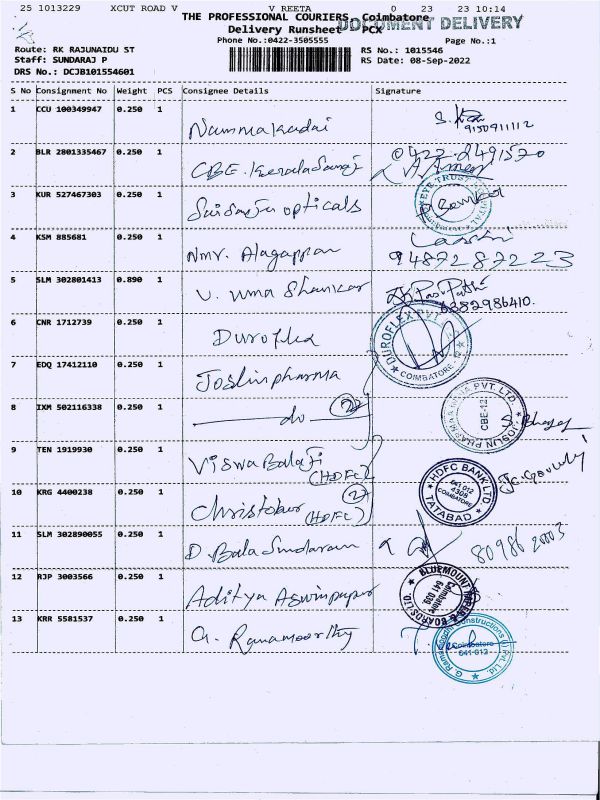 25 1013229 XCUT ROAD V V REETA 0 23 23 10:14
THE PROFESSIONAL COURIERS, Coimbatore
DOCUMENT DELIVERY
Delivery Runsheet PCX
Phone No.:0422-3505555 Page No.:1
Route: RK RAJUNAIDU ST RS No.: 1015546
Staff: SUNDARAJ P RS Date: 08-Sep-2022
DRS No.: DCJB101554601
S No Consignment No Weight PCS Consignee Details Signature
1 CCU 100349947 0.250 1 Nammakadai 9150911112
2 BLR 2801335467 0.250 1 CBE. 0422-2491570
3 KUR 527467303 0.250 1 opticals
EYE TRUST
4 KSM 885681 0.250 1 Nmr. Alagappan 9487287223
5 SLM 302801413 0.890 1 V. Uma Shankar 6382986410.
6 CNR 1712739 0.250 1 Duroflex
DUROFLEX PVT
COIMBATORE
7 EDQ 17412110 0.250 1 Joslin pharma
8 IXM 502116338 0.250 1 do (2)
JOSLIN PHARMA INDIA PVT. LTD.
CBE-12
9 TEN 1919930 0.250 1 Viswa Balaji (HDFC)
10 KRG 4400238 0.250 1 Christober (HDFC) (2)
HDFC BANK LTD
641 012
4305
COIMBATORE
TATABAD
11 SLM 302890055 0.250 1 D. Bala Sundaram 80986 20003
12 RJP 3003566 0.250 1 Aditya Aswinpaper
BLUEMOUNT PAPER & BOARDS LTD.
Coimbatore
13 KRR 5581537 0.250 1 G. Ramamoorthy
G. Ramamoorthi Constructions (I) Pvt. Ltd.
Coimbatore
641-012